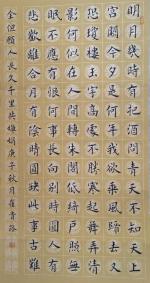 明月幾時有把酒問青天不知天上
宮闕今夕是何年我欲乘風歸去又
恐瓊樓玉宇高處不勝寒起舞弄清
影何似在人間轉朱閣低綺戶照無
眠不應有恨何事長向別時圓人有
悲歡離合月有陰晴圓缺此事古難
全但願人長久千里共嬋娟庚子秋月崔